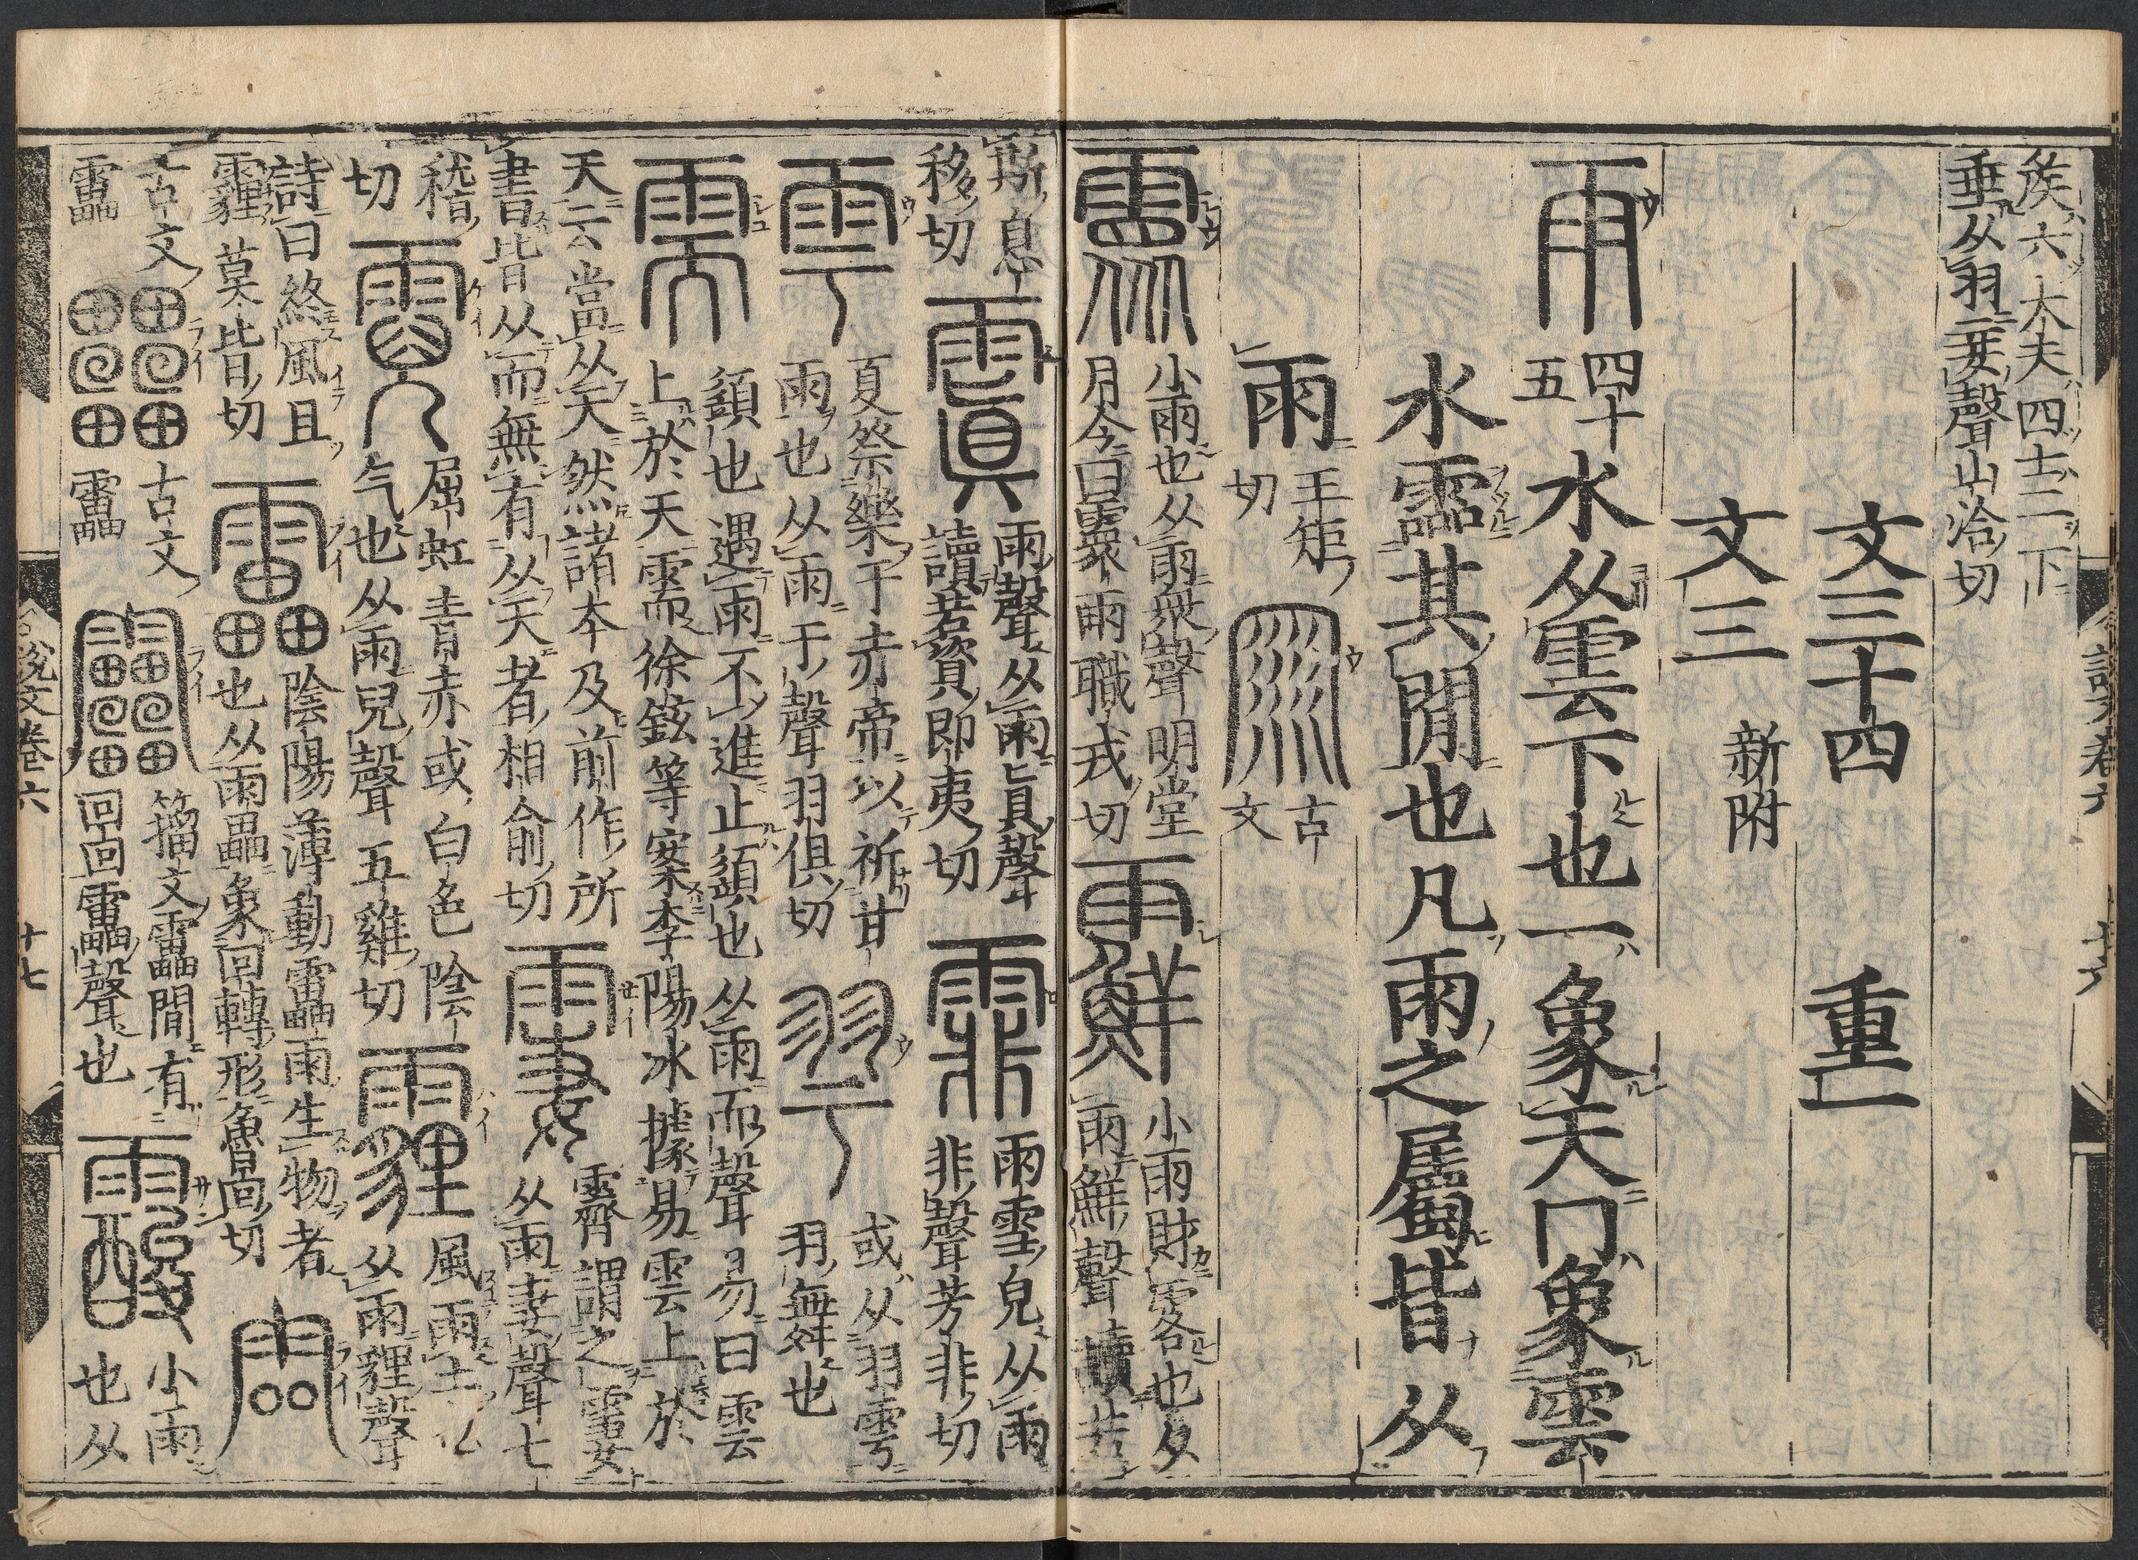 矦六大夫四士二下
垂从羽妾聲山洽切
文三十四 重一
文三 新附
雨 四十五 水从雲下也一象天冂象雲
水霝其閒也凡雨之屬皆从
雨 王矩切 𠕲 古文
霥 小雨也从雨衆聲明堂
月令曰霥雨職戎切
䨘 小雨財䨏也
雨鮮聲讀若
斯息移切
䨲 雨聲从雨眞聲
讀若資即夷切
霏 雨雪皃从雨
非聲芳非切
雩 夏祭樂于赤帝以祈甘
雨也从雨于聲羽俱切
𦏴 或从羽雩
羽舞也
需 䇓也遇雨不進止䇓也从雨而聲易曰雲
上於天需徐鉉等案李陽冰據易雲上於
天云當从天然諸本及前作所
書皆从而無有从天者相俞切
霋 霽謂之霋
从雨妻聲七
稽切
霓 屈虹青赤或白色陰
气也从雨兒聲五雞切
霾 風雨土也
从雨貍聲
詩曰終風且
霾莫皆切
靁 陰陽薄動靁雨生物者
也从雨畾象回轉形魯回切
𤴐 古文靁
𤳳 古文靁
䨻 籒文靁閒有
回回靁聲也
霰 小雨
也从
說文卷六 十六
說文卷六 十七